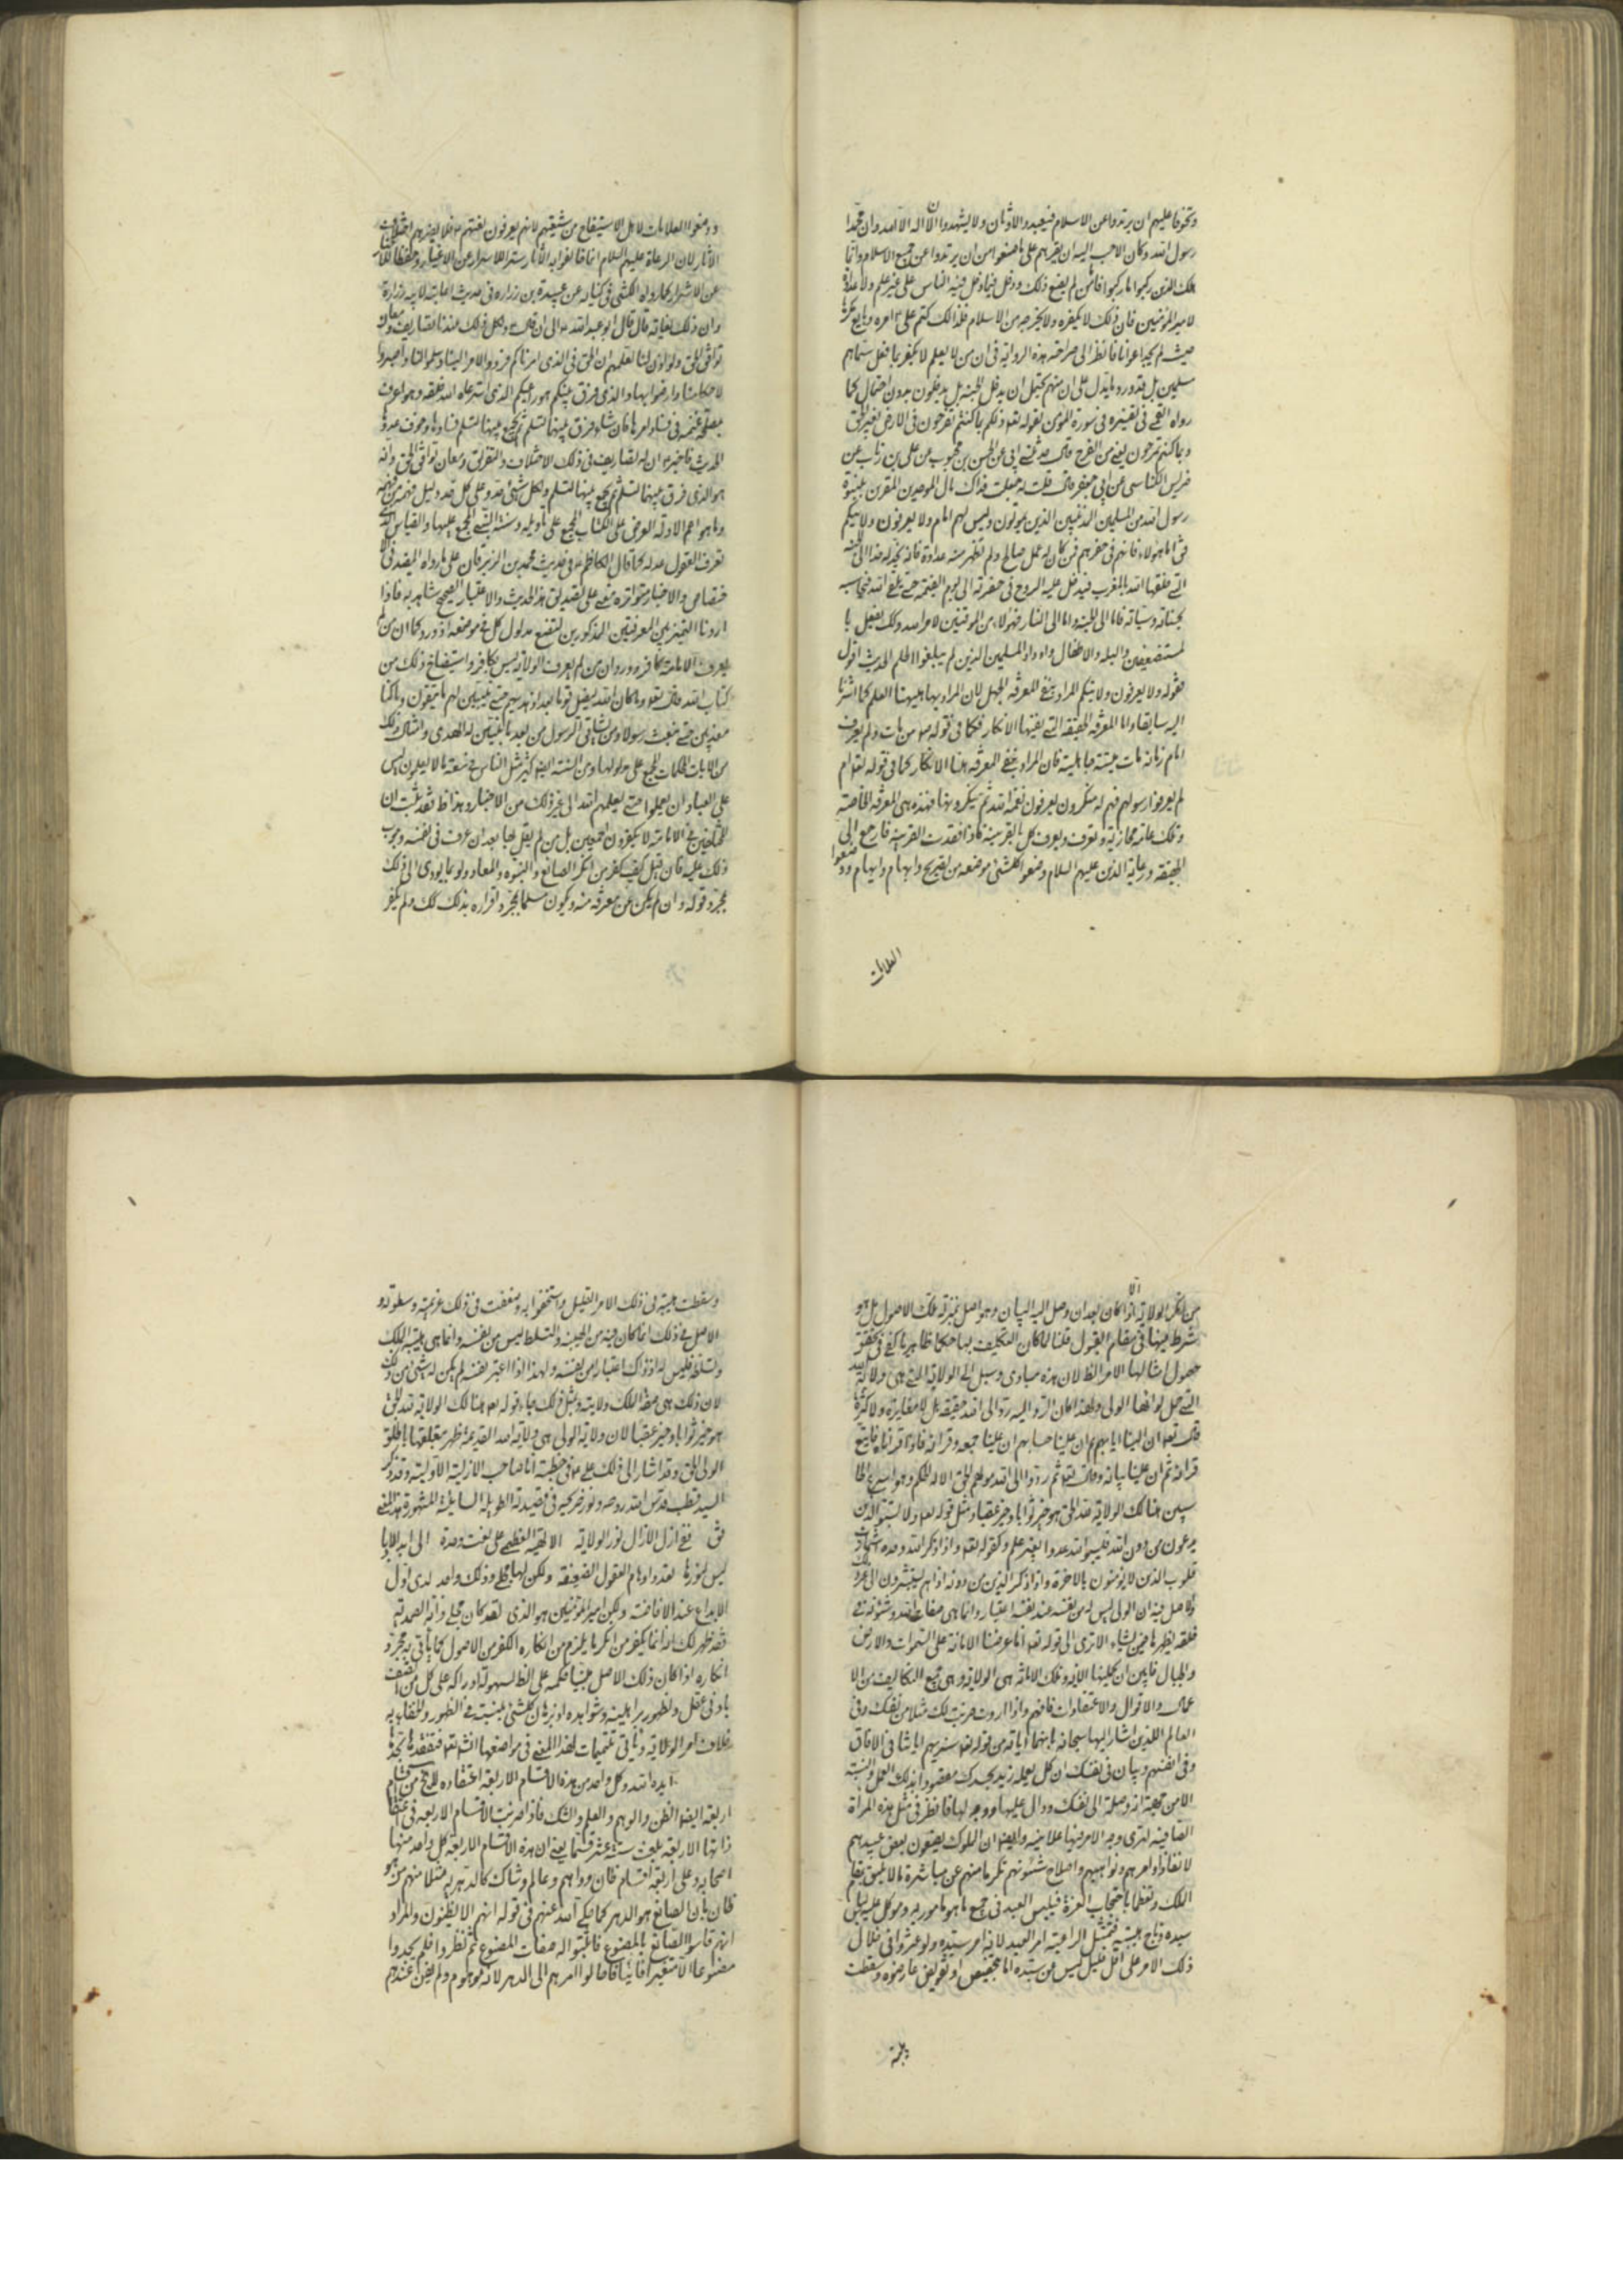 وتخوفا عليهم ان يرتدوا عن الاسلام فيعبدوا الاوثان ولا يشهدوا ان لا اله الا الله وان محمدا
رسول الله وكان الاحب اليه ان يقرهم على ما صنعوا من ان يرتدوا عن جميع الاسلام وانما
هلك الذين ركبوا ما ركبوا فاما من لم يصنع ذلك ودخل فيما دخل فيه الناس على غير علم ولا عداوة
لامير المؤمنين فان ذلك لا يكفره ولا يخرجه من الاسلام فلذلك كتم على امره وبايع مكرها
حيث لم يجد اعوانا فانظر الى صراحة هذه الرواية في ان من لا يعلم لا يكفر بما فعل
مسلمين بل قد ورد ما يدل على ان منهم يحتمل ان يدخل الجنة بل يدخلون بدون احتمال كما
رواه القمي في تفسيره في سورة المؤمن لقوله تعالى ذلكم بما كنتم تفرحون في الارض بغير الحق
وبما كنتم تمرحون ابي عن الحسن بن محبوب عن علي بن رئاب عن
ضريس الكناسي عن ابي جعفر قال قلت له جعلت فداك ما حال الموحدين المقرين بنبوة
رسول الله من المسلمين المذنبين الذين يموتون وليس لهم امام ولا يعرفون ولايتكم
فقال اما هؤلاء فانهم في حفرهم فمن كان له عمل صالح ولم تظهر منه عداوة فانه يخد له خدا الى الجنة
التي خلقها الله بالمغرب فيدخل عليه الروح في حفرته الى يوم القيمة حتى يلقى الله فيحاسبه
بحسناته وسيئاته فاما الى الجنة واما الى النار فهؤلاء من الموقفين لامر الله وكذلك يفعل با
لمستضعفين والبله والاطفال واولاد المسلمين الذين لم يبلغوا الحلم الحديث اقول
فقوله ولا يعرفون ولايتكم المراد بنفي المعرفة الجهل لان المراد بها العلم كما اشرنا
اليه سابقا واما المعرفة الحقيقة التي نفيها الانكار فكما في قوله من مات ولم يعرف
امام زمانه مات ميتة جاهلية فان المراد بنفي المعرفة هنا الانكار كما في قوله تعالى ام
لم يعرفوا رسولهم فهم له منكرون يعرفون نعمة الله ثم ينكرونها فهذه هي المعرفة الخاصة
وتلك عامة مجازية وتعرف كل بالقرينة فاذا فقدت القرينة فارجع الى
الحقيقة ورعاية الدين عليهم السلام وضعوا كلشئ موضعه من تصريح وابهام وايهام ووضعوا
العلامات
ووضعوا العلامات لاهل الاستيضاح من شيعتهم لانهم يعرفون لغتهم فلا يضرهم اختلاف
الآثار لان الرعاة عليهم السلام انما خالفوا به الآثار سترا للاسرار عن الاغيار وحفظا
عن الاشرار كما رواه الكشي في كتابه عن عبد الله بن زرارة في حديث
وان ذلك قال قال ابو عبد الله الى ان قال ولكل ذلك عندنا تصاريف ومعان
توافق الحق ولو اذن لنا لعلمتم ان الحق في الذي امرناكم فردوا الامر الينا وسلموا لنا واصبروا
لاحكامنا وارضوا بها والذي فرق بينكم هو راعيكم الذي استرعاه الله خلقه وهو اعرف
بمصلحة غنمه في فساد امرها فان شاء فرق بينها لتسلم ثم يجمع بينها لتسلم من فسادها وخوف عدوها
الحديث فاخبر ان له تصاريف في ذلك الاختلاف والتفريق ومعان توافق الحق وانه
هو الذي فرق بينها لتسلم ثم يجمع بينها لتسلم ولكل شئ حد وعلى كل حد دليل
وما هو اعم الادلة العرض على الكتاب المجمع على تأويله وسنة النبي المجمع عليها والقياس الذي
تعرف العقول عدله كما قال الكاظم في حديث محمد بن الزبرقان على ما رواه المفيد في الا
ختصاص والاخبار متواترة معنى على تصديق هذا الحديث والاعتبار الصحيح شاهد به فاذا
اردنا التمييز بين المعرفتين المذكورتين لنضع مدلول كل في موضعه اذ ورد كما ان من لم
يعرف الامامة كافر وورد ان من لم يعرف الولاية ليس بكافر واستيضاح ذلك من
كتاب الله قال تعالى وما كان الله ليضل قوما بعد اذ هديهم حتى يبين لهم ما يتقون وما كنا
معذبين حتى نبعث رسولا ومن يشاقق الرسول من بعد ما تبين له الهدى وامثال ذلك
من الآيات المحكمات المجمع على مدلولها ومن السنة ايضا كثير مثل الناس في سعة ما لا يعلمون ليس
على العباد ان يعلموا حتى يعلمهم الله الى غير ذلك من الاخبار وهذا فقد ثبت ان
المخالفين في الامامة لا يكفرون اجمعين بل من لم يقل بها بعد ان عرف في نفسه وجوب
ذلك عليه فان قيل كيف يكفر من انكر الصانع والنبوة والمعاد ولو بما يؤدي الى ذلك
بمجرد قوله وان لم يكن عن معرفة منه ويكون مسلما بمجرد اقراره بذلك كك ولم يكفر
من انكر الولاية الا اذا كان بعد ان وصل اليه البيان وهو اصل بمنزلة تلك الاصول بل هو
شرط فيها في مقام القبول قلنا لما كان التكليف بها حكما ظاهريا كفى في تحقق
حصول امثالها الامر الظ لان هذه مبادي وسبل الى الولاية التي هي ولاية الله
التي حمل لواءها الولي ولهذا كان الرد اليه ردا الى الله حقيقة بل لا مغايرة ولا كثرة
قال تعالى ان الينا ايابهم ثم ان علينا حسابهم ان علينا جمعه وقرآنه فاذا قرأناه فاتبع
قرآنه ثم ان علينا بيانه وقال تعالى ثم ردوا الى الله مولهم الحق الا له الحكم وهو اسرع الحا
سبين هنالك الولاية لله الحق هو خير ثوابا وخير عقبا ومثل قوله تعالى ولا تسبوا الذين
يدعون من دون الله فيسبوا الله عدوا بغير علم وكقوله تعالى واذا ذكر الله وحده اشمأزت
قلوب الذين لا يؤمنون بالاخرة واذا ذكر الذين من دونه اذا هم يستبشرون
والاصل فيه ان الولي ليس له من نفسه عند نفسه اعتبار وانما هي صفات الله وشؤنه في
خلقه يظهرها فيمن يشاء الا ترى الى قوله تعالى انا عرضنا الامانة على السموات والارض
والجبال فابين ان يحملنها الآية وتلك الامانة هي الولاية وهي جميع التكاليف من الا
عمال والاقوال والاعتقادات فافهم واذا اردت ضربت لك مثلا من نفسك وفي
العالم اللذين اشار اليها سبحانه من قوله تعالى سنريهم اياتنا في الافاق
وفي انفسهم وبيان في نفسك ان كل يعمله زيد
الا من جهة انه وصلة الى نفسك ودال عليها ووجه لها فانظر في مثل هذه المرآة
الصافية لترى وجه الامر فيها علانية وايضا ان الملوك يصنعون بعض عبيدهم
لانفاذ اوامرهم ونواهيهم واصلاح شئونهم تكرما منهم عن مباشرة ما لا يليق بمقام
الملك وتعظما باحتجاب العزة فيلبس العبد في جميع ما هو مأمور به وموكل عليه لباس
سيده وتاج هيبته فتمتثل الرعية امر العبد لانه امر سيده ولو عثروا في خلال
ذلك الامر على اقل قليل ليس من سيده اما بتخصيص او تفويض عارضوه وسقطت
هيبته
وسقطت هيبته في ذلك الامر القليل واستخفوا به وضعفت في ذلك عزيمته وسطوته و
الاصل في ذلك انما كان فيه من الهيبة والتسلط ليس من نفسه وانما هي هيبة الملك
وتسلطه فليس له اذ ذاك اعتبار من نفسه ولهذا اذا اعتبر نفسه لم يكن له شئ من ذلك
لان ذلك هي صفة الملك وولايته ومثل ذلك جاء قوله تعالى هنالك الولاية لله الحق
هو خير ثوابا وخير عقبا لان ولاية الولي هي ولاية الله القديمة اظهر متعلقها بالخلق
الولي الحق وقد اشار الى ذلك علي في خطبته انا صاحب الازلية الاولية وقد ذكر
السيد قطب قدس الله روحه ونور ضريحه في قصيدته الطويلة المشهورة
ففي ازل الازال نور الولاية الالهية العظمى على نعت وحدة الى ابد الآبا
ليس لنورها نفاد واوهام العقول الضعيفة ولكن لها مجلى وذلك واحد لدى اول
الابداع عند الافاضة وليكن امير المؤمنين هو الذي لقد كان مجلى ذاته الصمدية
فقد ظهر لك انه انما يكفر من انكر ما يلزم من انكاره الكفر من الاصول كما يأتي بمجرد
انكاره اذا كان ذلك الاصل مبنيا حكمه على الظ لسهولة ادراكه على كل من اتصف
بادنى عقل ولظهور براهينه وشواهده اذ برهان كلشئ بنسبته في الظهور والخفاء به
بخلاف امر الولاية ويأتي تتميمات لهذا المعنى في مواضعها انشاء الله تعالى فتفقدها تجدها
ايده الله وكل واحد من هذه الاقسام الاربعة اعتقاده لا يخرج من اقسام
اربعة ايضا الظن والوهم والعلم والشك فاذا ضربت الاقسام الاربعة في
ذاتها الاربعة بلغت ستة عشر قسما يعني ان هذه الاقسام الاربعة كل واحد منها
اصحابه على اربعة اقسام ظان وواهم وعالم وشاك كالدهرية مثلا منهم من هو
ظان بان الصانع هو الدهر كما حكى الله عنهم في قوله ان هم الا يظنون والمراد
انهم قاسوا الصانع بالمصنوع فاثبتوا له صفات المصنوع ثم نظروا فلم يجدوا
مصنوعا الا متغيرا فانيا فاحالوا امرهم الى الدهر لانه موهوم ولم يفن عندهم